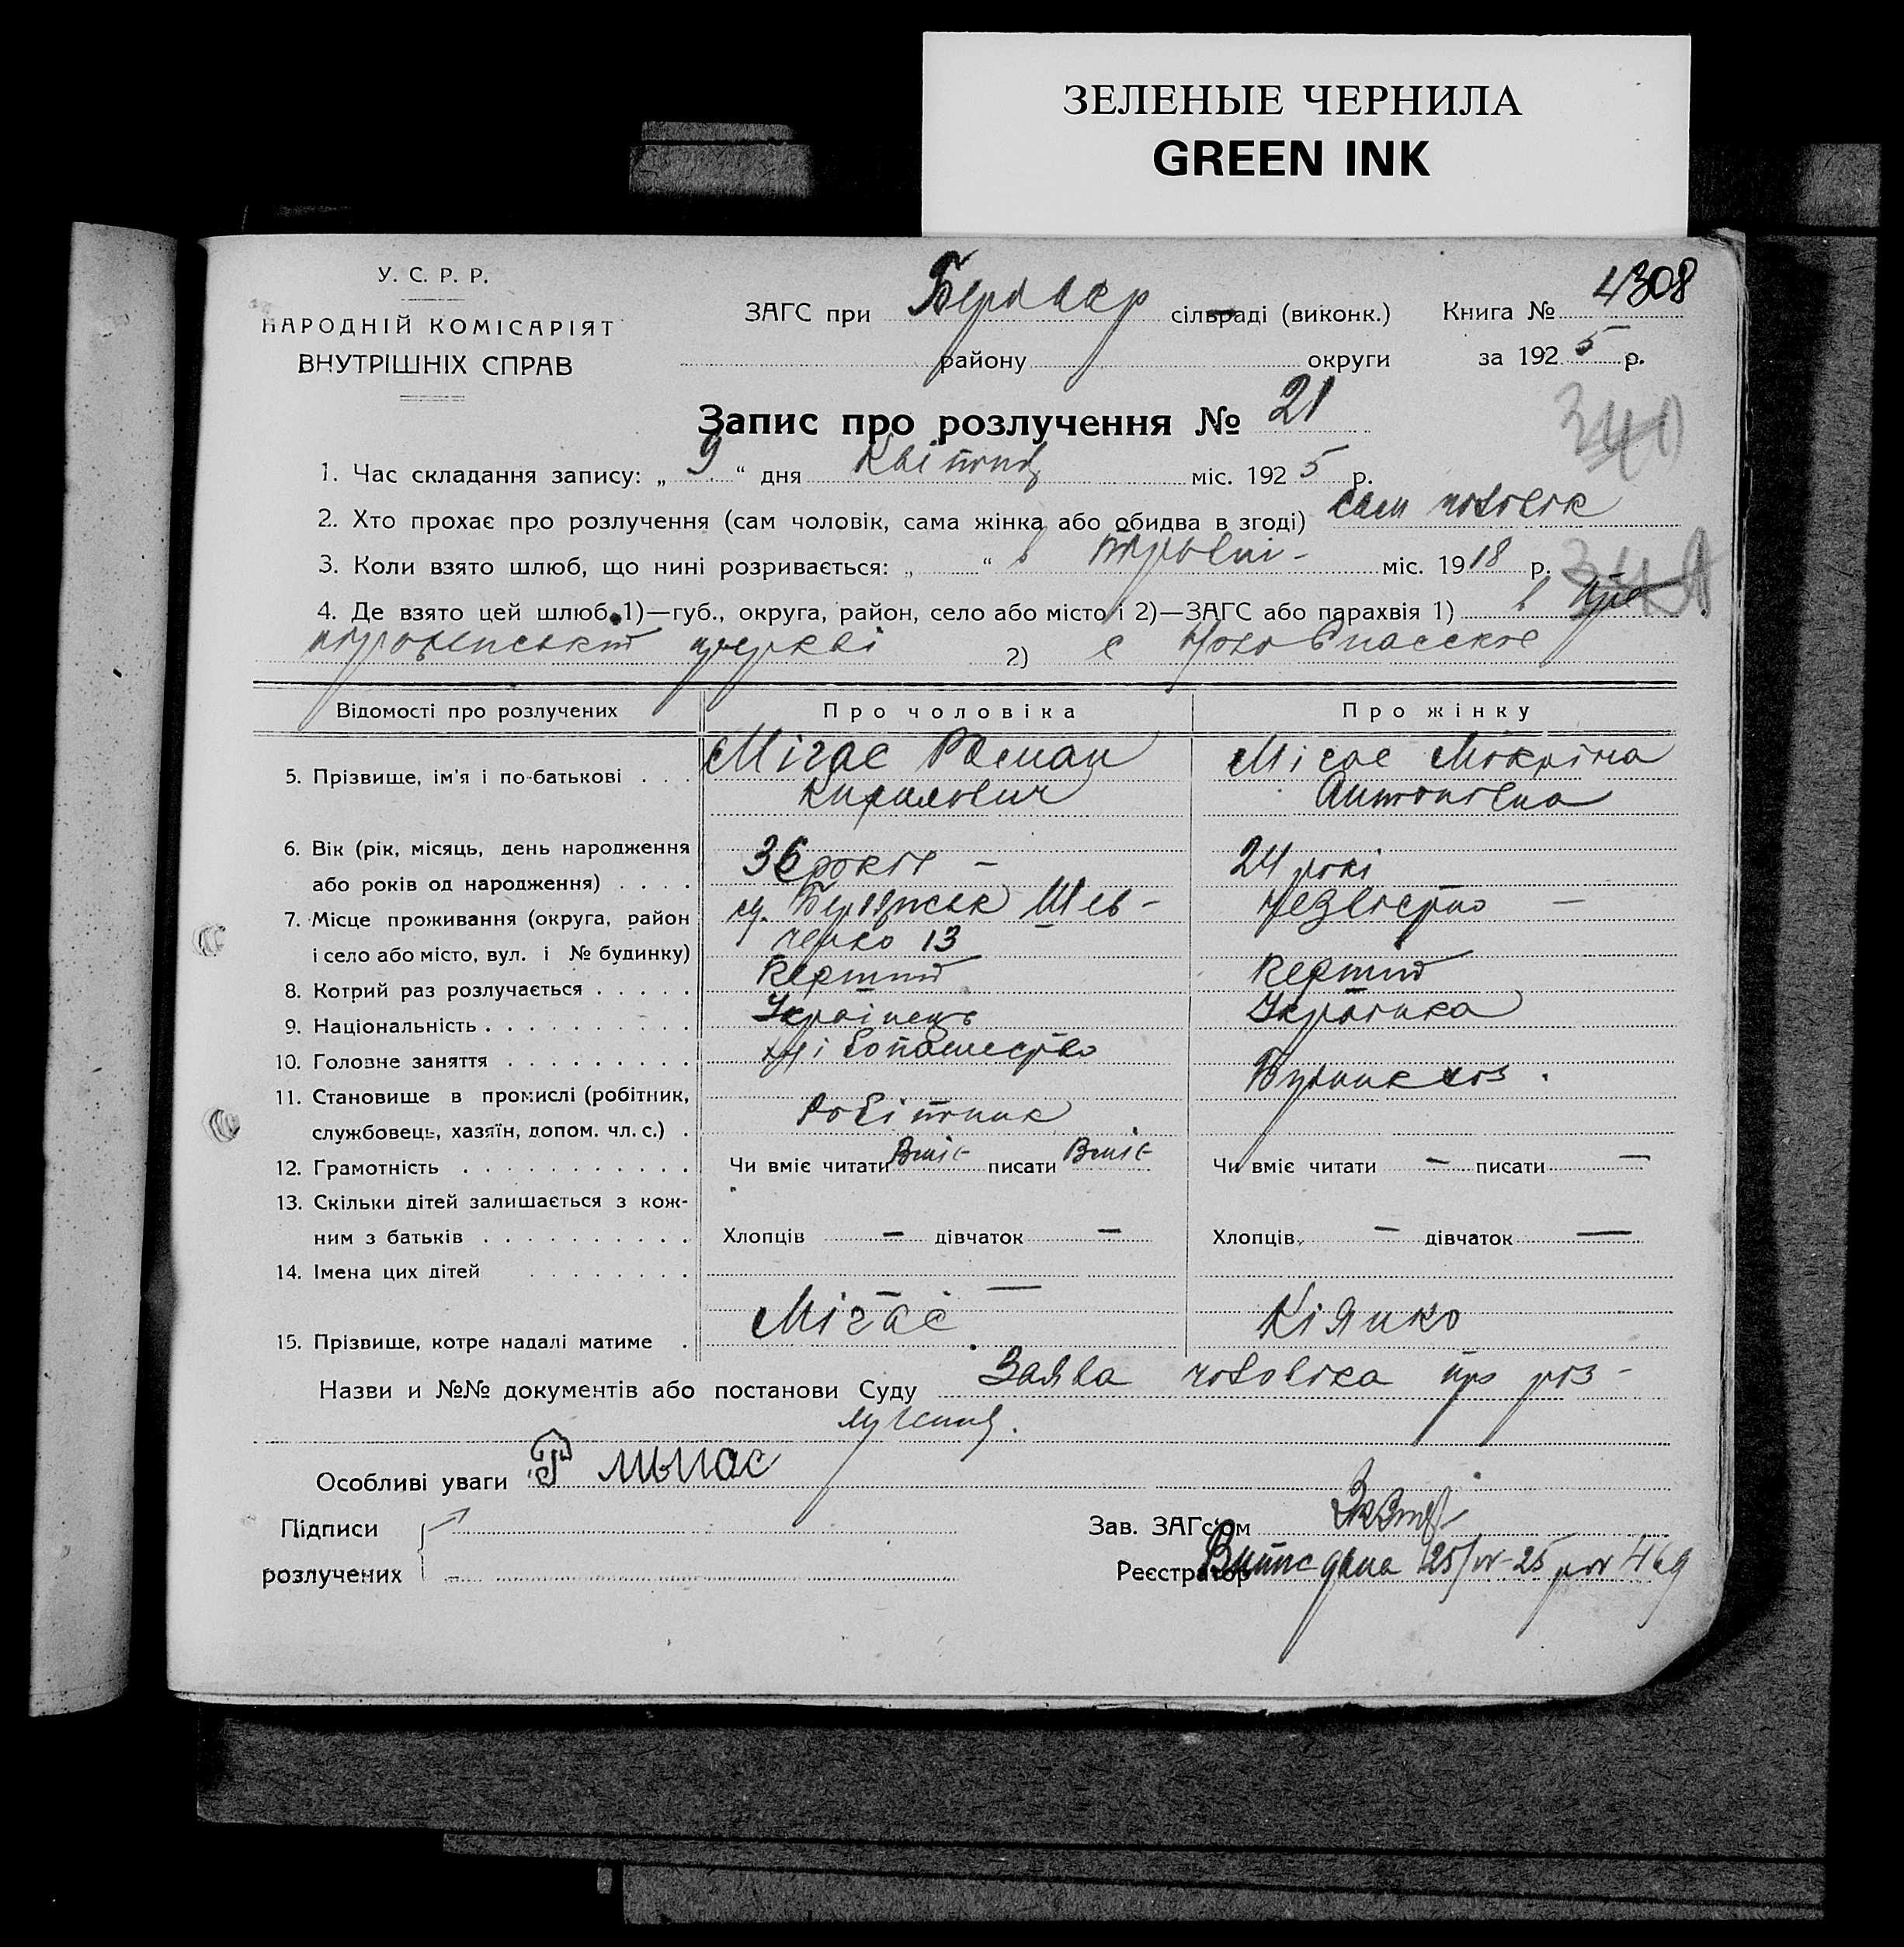 ЗЕЛЕНЫЕ ЧЕРНИЛА
GREEN INK
У. С. Р. Р.
НАРОДНІЙ КОМІСАРІЯТ
ВНУТРІШНІХ СПРАВ
ЗАГС при сільраді (виконк.) Книга № 4308
району округи за 1925 р.
Запис про розлучення № 21
340
1. Час складання запису: „ 9 “ дня Квітня міс. 1925 р.
2. Хто прохає про розлучення (сам чоловік, сама жінка або обидва в згоді) сам чоловік
3. Коли взято шлюб, що нині розривається: „ “ в травні - міс. 1918 р.
4. Де взято цей шлюб 1)—губ., округа, район, село або місто і 2)—ЗАГС або парахвія 1) в
церкві 2) с Ново Спасское
Відомості про розлучених Про чоловіка Про жінку
5. Прізвище, ім'я і по-батькові . . . Мігас Роман Мігас Мокрина
Кирилович Антоновна
6. Вік (рік, місяць, день народження
або років од народження) . . . . 36 років — 24 рокі
7. Місце проживання (округа, район м. Бердянськ Шев- Незвістно —
і село або місто, вул. і № будинку) ченко 13
8. Котрий раз розлучається . . . . . Перший Перший
9. Національність . . . . . . . . . . Українець Українка
10. Головне заняття . . . . . . . . . хлібопашество
11. Становище в промислі (робітник,
службовець, хазяїн, допом. чл. с.) . робітник
12. Грамотність . . . . . . . . . . . Чи вміє читати Вміє писати Вміє Чи вміє читати — писати —
13. Скільки дітей залишається з кож-
ним з батьків . . . . . . . . . . Хлопців — дівчаток — Хлопців — дівчаток —
14. Імена цих дітей . . . . . . . . —
15. Прізвище, котре надалі матиме . Мігас Кіянко
Назви и №№ документів або постанови Суду Заява чоловіка про роз-
лучення.
Особливі уваги Р мыгас
Підписи Зав. ЗАГс'ом
розлучених Реєстратор Випис дана 25/IV-25 р № 469